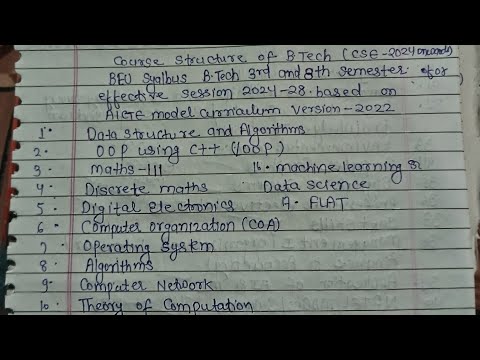 Course structure of B.Tech (CSE-2024 onwards)
BEU Syllbus B.Tech 3rd and 8th semester for
effective session 2024-28. based on
AICTE model curriculum version-2022
1. Data structure and Algorithms
2. OOP using C++ (OOP)
3. maths-III 16. machine learning &
4. Discrete maths Data science
5. Digital electronics A. FLAT
6. Computer organization (COA)
7. Operating System
8. Algorithms
9. Computer Network
10. Theory of Computation